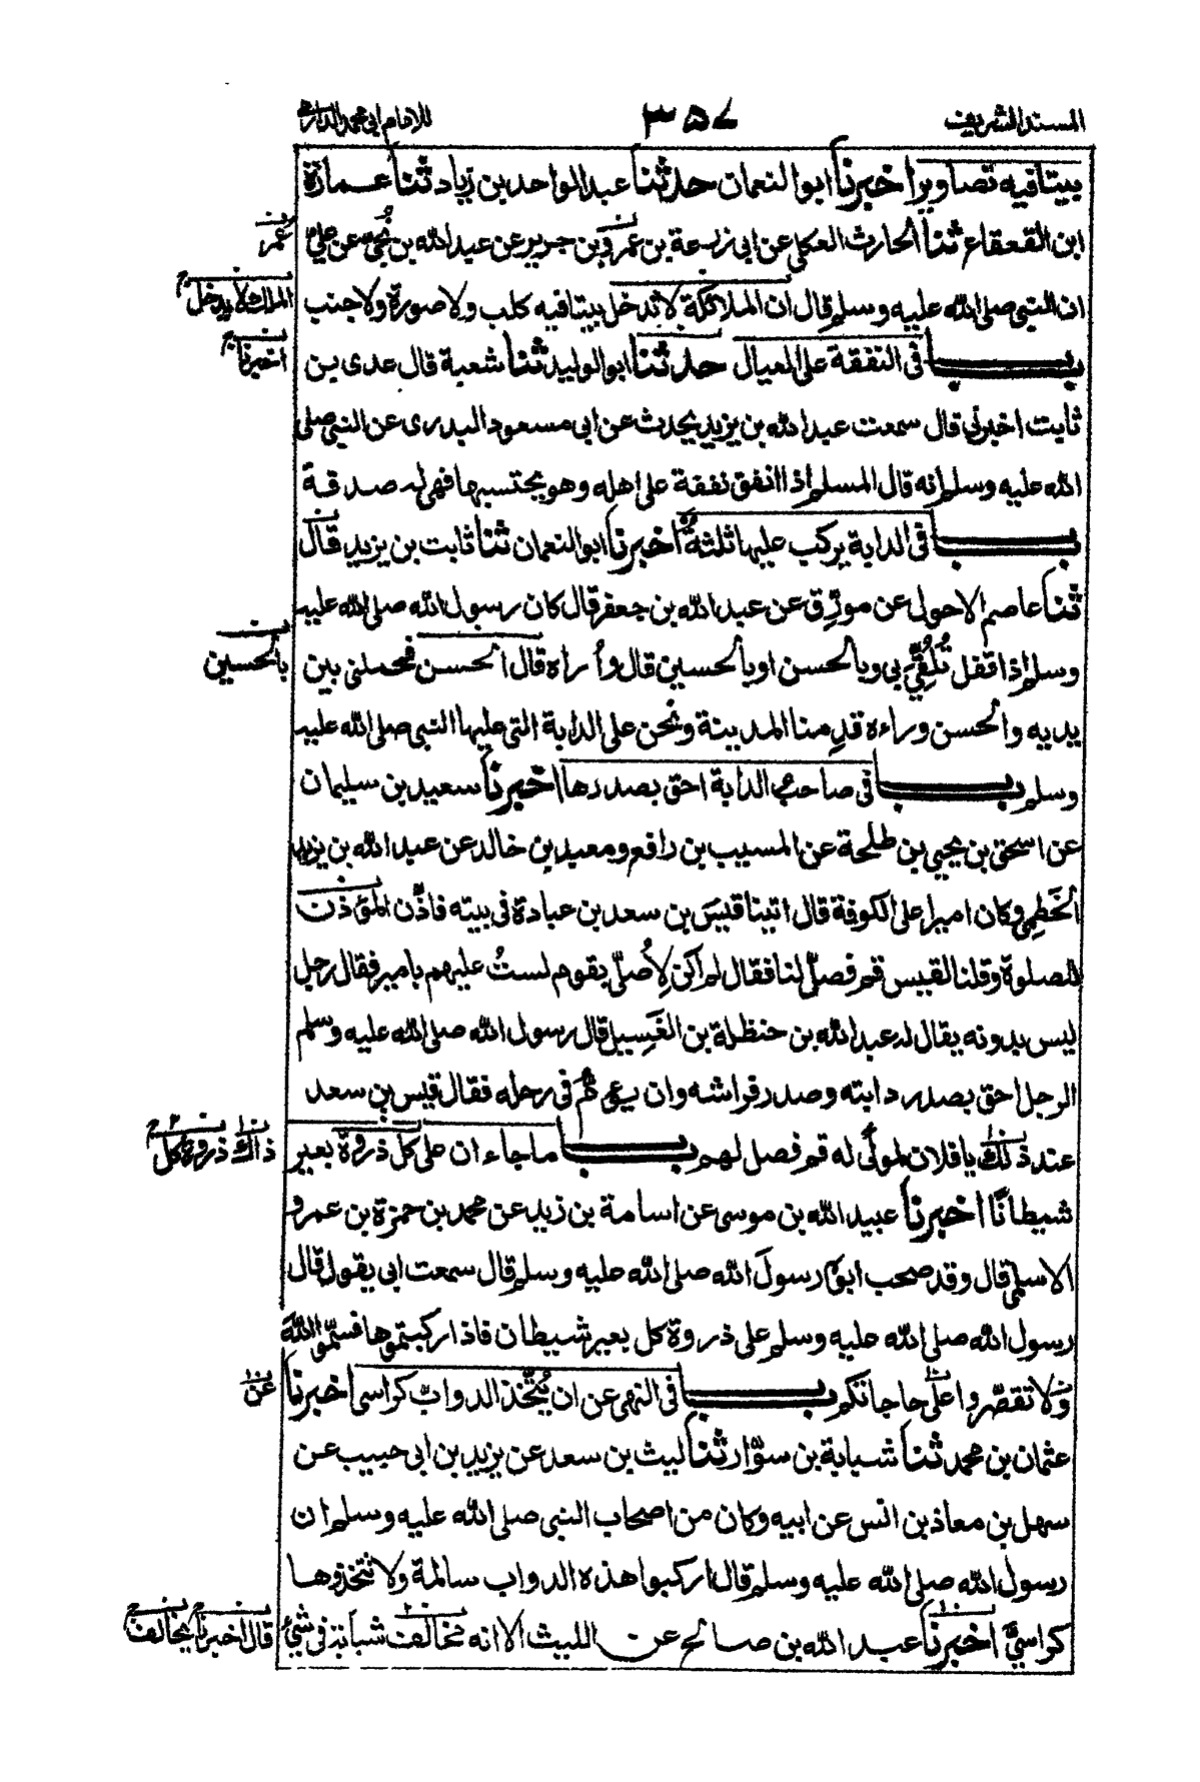 المسند الشريف
٣٥٧
للامام ابي محمد الدارمي
بيتا فيه تصاوير اخبرنا ابو النعمان حدثنا عبد الواحد بن زياد ثنا عمارة
ابن القعقاع ثنا الحارث العكلي عن ابي زرعة بن عمرو بن جرير عن عبد الله بن نُجَيّ عن علي
عمر
ان النبي صلى الله عليه وسلم قال ان الملائكة لا تدخل بيتا فيه كلب ولا صورة ولا جنب
الملك لا يدخل
باب في النفقة على العيال حدثنا ابو الوليد ثنا شعبة قال عدي بن
اخبرنا
ثابت اخبرني قال سمعت عبد الله بن يزيد يحدث عن ابي مسعود البدري عن النبي صلى
الله عليه وسلم انه قال المسلم اذا انفق نفقة على اهله وهو يحتسبها فهي له صدقة
باب في الدابة يركب عليها ثلثةٌ اخبرنا ابو النعمان ثنا ثابت بن يزيد قال
ثنا عاصم الاحول عن مورّق عن عبد الله بن جعفر قال كان رسول الله صلى الله عليه
وسلم اذا قفل تُلُقِّيَ بي وبالحسن او بالحسين قال واُراه قال الحسن فحملني بين
بالحسين
يديه والحسن وراءه قدِمنا المدينة ونحن على الدابة التي عليها النبي صلى الله عليه
وسلم باب في صاحب الدابة احق بصدرها اخبرنا سعيد بن سليمان
عن اسحق بن يحيى بن طلحة عن المسيب بن رافع ومعبد بن خالد عن عبد الله بن يزيد
الخَطِمي وكان اميرا على الكوفة قال اتينا قيسَ بن سعد بن عبادة في بيته فاذّن المؤذن
للصلوة وقلنا لقيس قم فصلّ لنا فقال لم اكن لاُصلّي بقوم لستُ عليهم بامير فقال رجل
ليس بدونه يقال له عبد الله بن حنظلة بن الغَسِيل قال رسول الله صلى الله عليه وسلم
الرجل احق بصدر دابته وصدر فراشه وان يؤم في رحله فقال قيس بن سعد
عند ذلك يا فلان لمولًى له قم فصل لهم باب ما جاء ان على كل ذروة بعير
ذاك
ذروة كل
شيطانًا اخبرنا عبيد الله بن موسى عن اسامة بن زيد عن محمد بن حمزة بن عمرو
الاسلمي قال وقد صحب ابوه رسولَ الله صلى الله عليه وسلم قال سمعت ابي يقول قال
رسول الله صلى الله عليه وسلم على ذروة كل بعير شيطان فاذا ركبتموها فسمّوا اللهَ
ولا تقصّروا على حاجاتكم باب في النهي عن ان يُتّخذ الدوابّ كراسي اخبرنا
عن
عثمان بن محمد ثنا شبابة بن سوّار ثنا ليث بن سعد عن يزيد بن ابي حبيب عن
سهل بن معاذ بن انس عن ابيه وكان من اصحاب النبي صلى الله عليه وسلم ان
رسول الله صلى الله عليه وسلم قال اركبوا هذه الدواب سالمة ولا تتخذوها
كراسيَّ اخبرنا عبد الله بن صالح عن الليث الا انه مخالف شبابة في شيئ
قال اخبرنا
يخالف